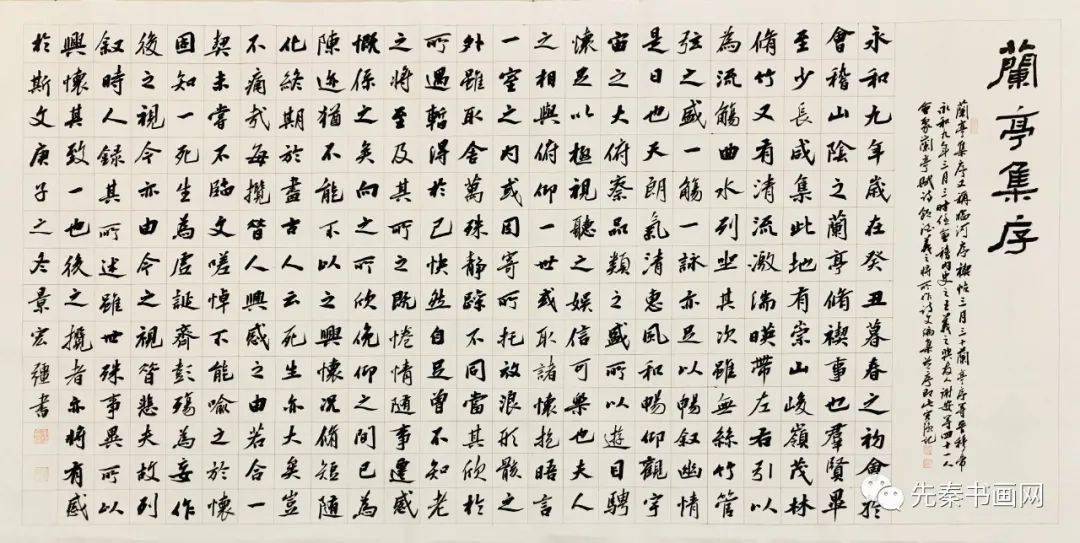 蘭亭集序
蘭亭集序又稱臨河序禊帖三月三十蘭亭序等晉穆帝
永和九年三月三時任會稽内史之王羲之與友人謝安等四十一人
會聚蘭亭賦詩飲酒羲之將所作詩文編集並序即此
永和九年歲在癸丑暮春之初會於
會稽山陰之蘭亭脩禊事也羣賢畢
至少長咸集此地有崇山峻嶺茂林
脩竹又有清流激湍暎帶左右引以
為流觴曲水列坐其次雖無絲竹管
弦之盛一觴一詠亦足以暢叙幽情
是日也天朗氣清惠風和暢仰觀宇
宙之大俯察品類之盛所以遊目騁
懷足以極視聽之娛信可樂也夫人
之相與俯仰一世或取諸懷抱晤言
一室之内或因寄所托放浪形骸之
外雖取舍萬殊静躁不同當其欣於
所遇暫得於己快然自足曾不知老
之將至及其所之既惓情隨事遷感
慨係之矣向之所欣俛仰之間已為
陳迹猶不能不以之興懷況脩短隨
化終期於盡古人云死生亦大矣豈
不痛哉每攬昔人興感之由若合一
契未嘗不臨文嗟悼不能喻之於懷
固知一死生為虛誕齊彭殤為妄作
後之視今亦由今之視昔悲夫故列
叙時人錄其所述雖世殊事異所以
興懷其致一也後之攬者亦將有感
於斯文庚子之冬景宏彊書
先秦书画网